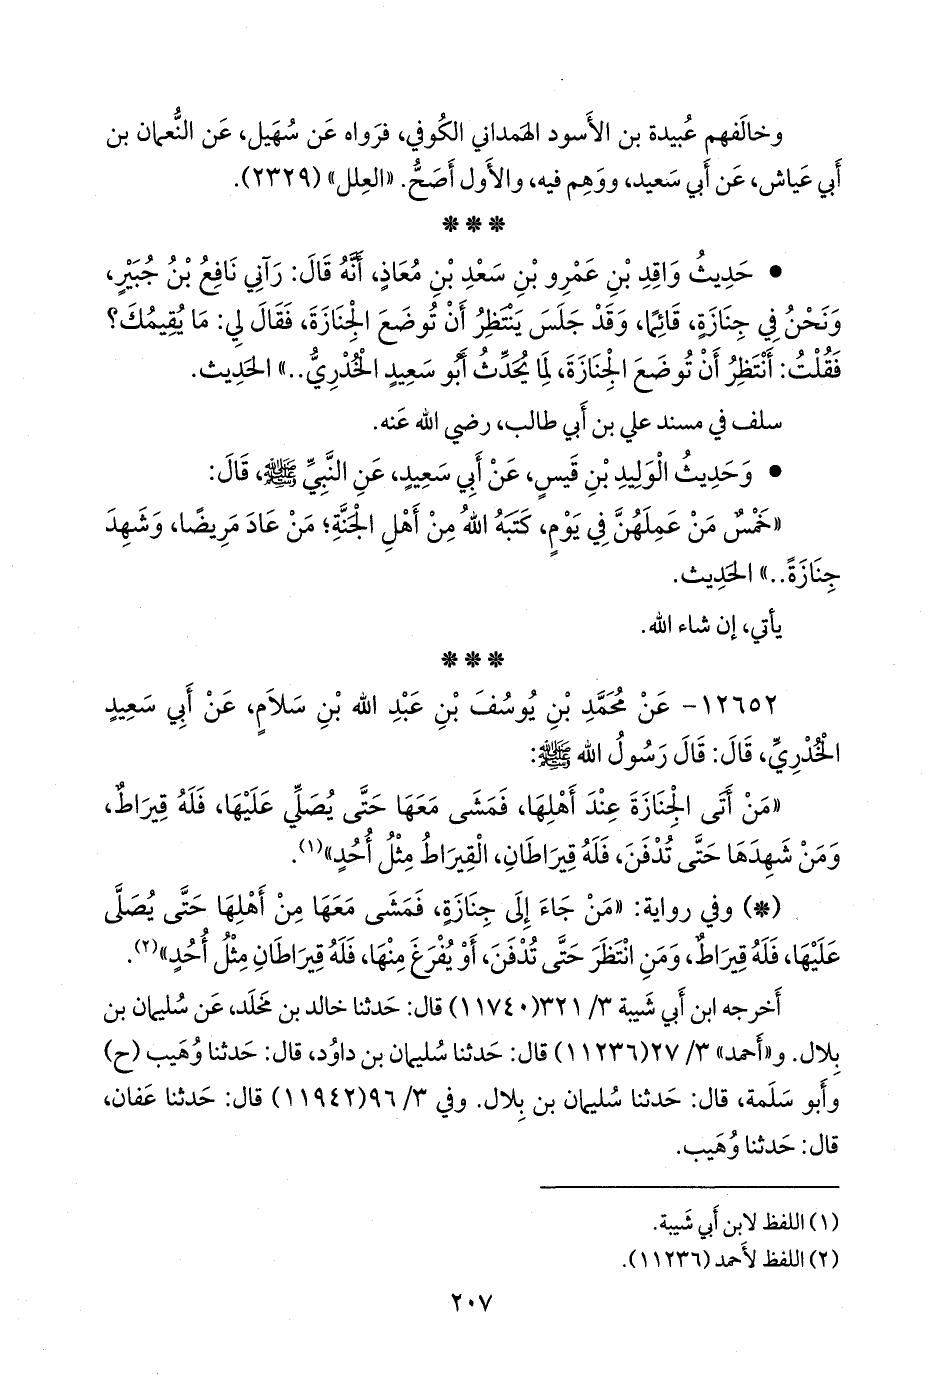 وخالَفهم عُبيدة بن الأَسود الهَمداني الكُوفي، فرَواه عَن سُهَيل، عَن النُّعمان بن
أَبي عَياش، عَن أَبي سَعيد، ووَهِم فيه، والأَول أَصَحُّ. «العِلل» (٢٣٢٩).
* * *
• حَدِيثُ وَاقِدِ بْنِ عَمْرِو بْنِ سَعْدِ بْنِ مُعَاذٍ، أَنَّهُ قَالَ: رَآنِي نَافِعُ بْنُ جُبَيْرٍ،
وَنَحْنُ فِي جِنَازَةٍ، قَائِمًا، وَقَدْ جَلَسَ يَنْتَظِرُ أَنْ تُوضَعَ الْجِنَازَةَ، فَقَالَ لِي: مَا يُقِيمُكَ؟
فَقُلْتُ: أَنْتَظِرُ أَنْ تُوضَعَ الْجِنَازَةَ، لِمَا يُحَدِّثُ أَبُو سَعِيدٍ الْخُدْرِيُّ..» الحَدِيث.
سلف في مسند علي بن أَبي طالب، رضي الله عَنه.
• وَحَدِيثُ الْوَلِيدِ بْنِ قَيسٍ، عَنْ أَبِي سَعِيدٍ، عَنِ النَّبِيِّ ﷺ، قَالَ:
«خَمْسٌ مَنْ عَمِلَهُنَّ فِي يَوْمٍ، كَتَبَهُ اللهُ مِنْ أَهْلِ الْجَنَّةِ؛ مَنْ عَادَ مَرِيضًا، وَشَهِدَ
جِنَازَةً..» الحَدِيث.
يأتي، إن شاء الله.
* * *
١٢٦٥٢- عَنْ مُحَمَّدِ بْنِ يُوسُفَ بْنِ عَبْدِ الله بْنِ سَلَامٍ، عَنْ أَبِي سَعِيدٍ
الْخُدْرِيِّ، قَالَ: قَالَ رَسُولُ الله ﷺ:
«مَنْ أَتَى الْجِنَازَةَ عِنْدَ أَهْلِهَا، فَمَشَى مَعَهَا حَتَّى يُصَلِّيَ عَلَيْهَا، فَلَهُ قِيرَاطٌ،
وَمَنْ شَهِدَهَا حَتَّى تُدْفَنَ، فَلَهُ قِيرَاطَانِ، الْقِيرَاطُ مِثْلُ أُحُدٍ»(١).
(*) وفي رواية: «مَنْ جَاءَ إِلَى جِنَازَةٍ، فَمَشَى مَعَهَا مِنْ أَهْلِهَا حَتَّى يُصَلَّى
عَلَيْهَا، فَلَهُ قِيرَاطٌ، وَمَنِ انْتَظَرَ حَتَّى تُدْفَنَ، أَوْ يُفْرَغَ مِنْهَا، فَلَهُ قِيرَاطَانِ مِثْلُ أُحُدٍ»(٢).
أَخرجه ابن أَبي شَيبة ٣/ ٣٢١(١١٧٤٠) قال: حَدثنا خالد بن مَخلَد، عَن سُليمان بن
بِلال. و«أَحمد» ٣/ ٢٧(١١٢٣٦) قال: حَدثنا سُليمان بن داوُد، قال: حَدثنا وُهَيب (ح)
وأَبو سَلَمة، قال: حَدثنا سُليمان بن بِلال. وفي ٣/ ٩٦(١١٩٤٢) قال: حَدثنا عَفان،
قال: حَدثنا وُهَيب.
(١) اللفظ لابن أَبي شَيبة.
(٢) اللفظ لأَحمد (١١٢٣٦).
٢٠٧